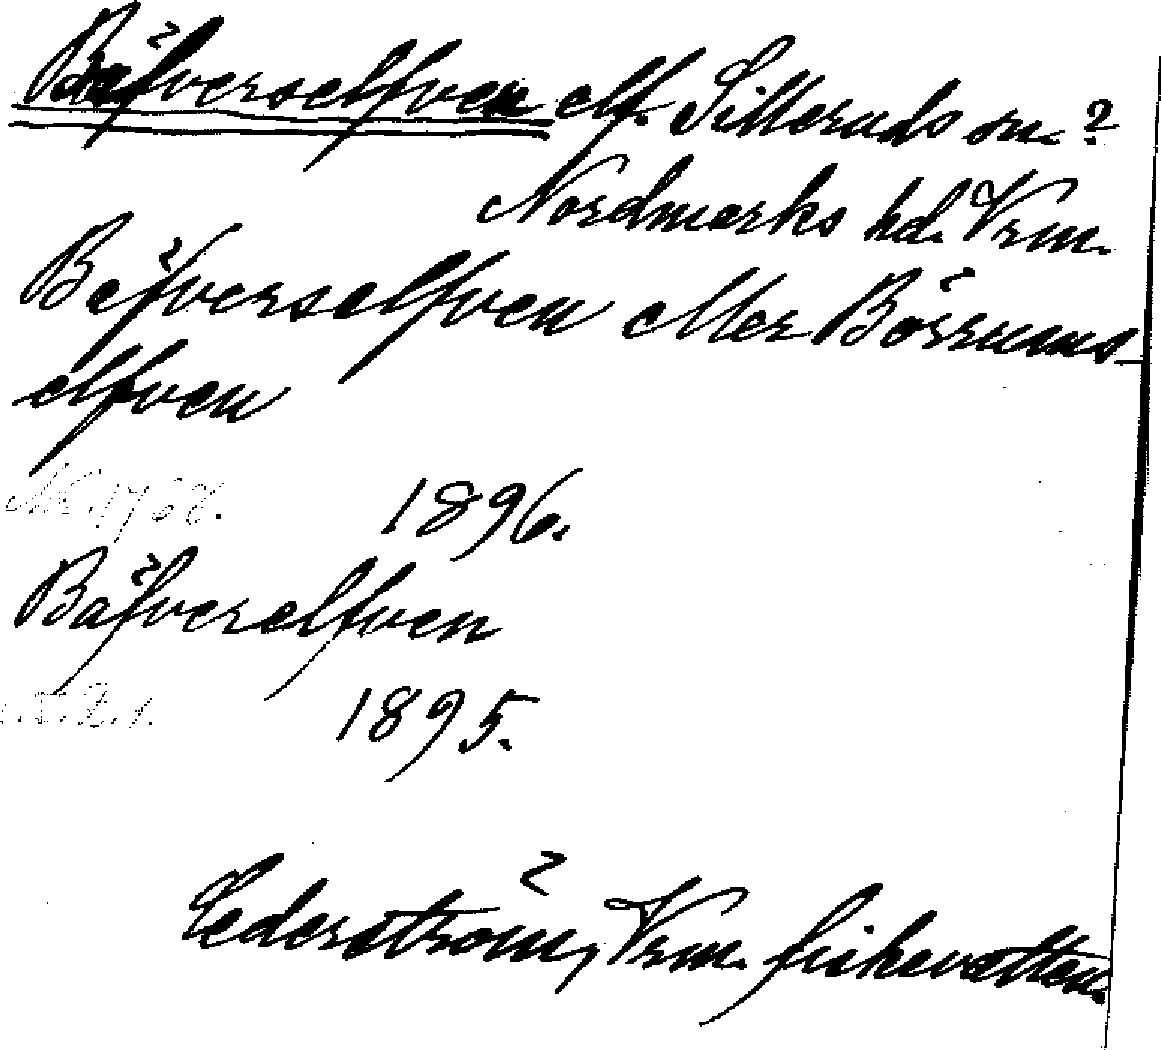 Bäfverselfven elf. Silleruds sn. ?
Nordmarks hd. Vrm.
Bäfverselfven eller Börrums-
elfven
1896.
Bäfverelfven
1895.
Cederström, Vrm. fiskevatten.